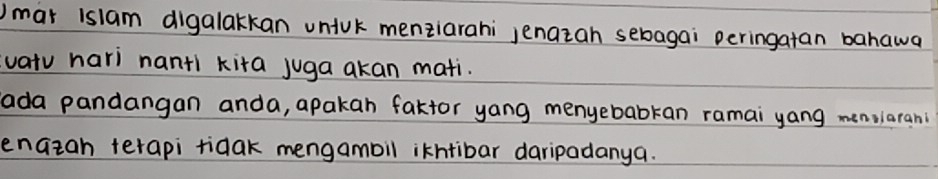 Umat Islam digalakkan untuk menziarahi jenazah sebagai peringatan bahawa
suatu hari nanti kita juga akan mati.
pada pandangan anda, apakah faktor yang menyebabkan ramai yang menziarahi
jenazah tetapi tidak mengambil ikhtibar daripadanya.